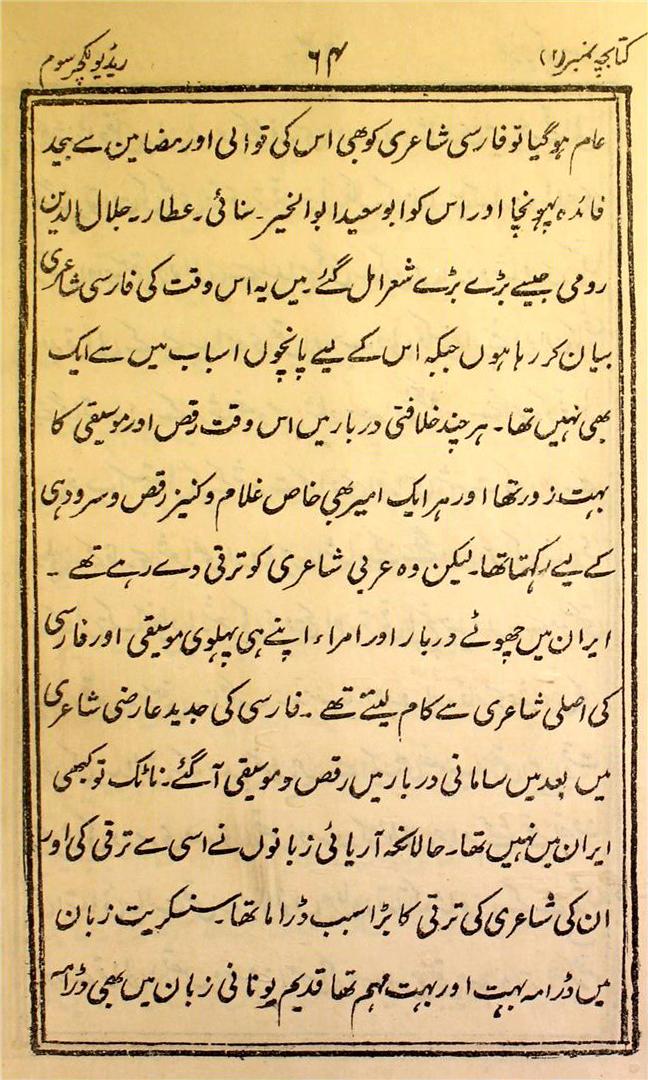 کتابچہ نمبر (۲) ۶۴ ریڈیو لکچر سوم
عام ہوگیا تو فارسی شاعری کو بھی اس کی قوالی اور مضامین سے بیحد
فائدہ پہونچا اور اس کو ابو سعید ابو الخیر۔ سنائی۔ عطار۔ جلال الدین
رومی جیسے بڑے بڑے شعرا مل گئے۔ میں یہ اس وقت کی فارسی شاعری
بیان کر رہا ہوں جبکہ اس کے لیے پانچوں اسباب میں سے ایک
بھی نہیں تھا۔ ہر چند خلافتی دربار میں اس وقت رقص اور موسیقی کا
بہت زور تھا اور ہر ایک امیر بھی خاص غلام و کنیز رقص و سرود ہی
کے لیے رکہتا تھا۔ لیکن وہ عربی شاعری کو ترقی دے رہے تھے ۔
ایران میں چھوٹے دربار اور امراء اپنے ہی پہلوی موسیقی اور فارسی
کی اصلی شاعری سے کام لیتے تھے ۔ فارسی کی جدید عارضی شاعری
میں بعد میں سامانی دربار میں رقص و موسیقی آ گئے۔ ناٹک تو کبھی
ایران میں نہیں تھا۔ حالانکہ آریائی زبانوں نے اسی سے ترقی کی اور
ان کی شاعری کی ترقی کا بڑا سبب ڈراما تھا۔ سنسکریت زبان
میں ڈرامہ بہت اور بہت مہم تھا قدیم یونانی زبان میں بھی ڈرامہ